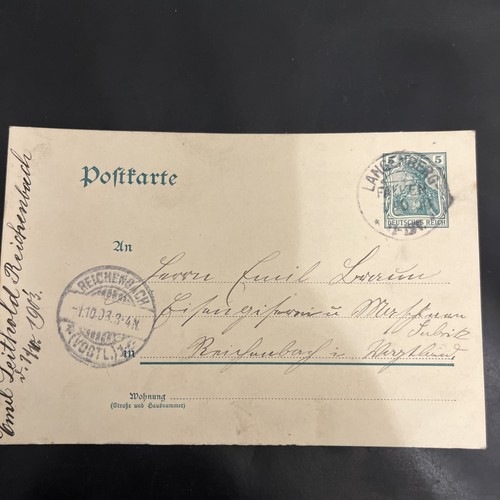 Postkarte
5
DEUTSCHES REICH
LANGENBERG
An
Herrn Emil Braun
Eisengiserei u Maschinen
Fabrik
in Reichenbach i Vogtland
Wohnung
(Straße und Hausnummer)
REICHENBACH
-1.10.03.3-4N.
(VOGTL.)
Emil Leithold Reichenbach
1903.